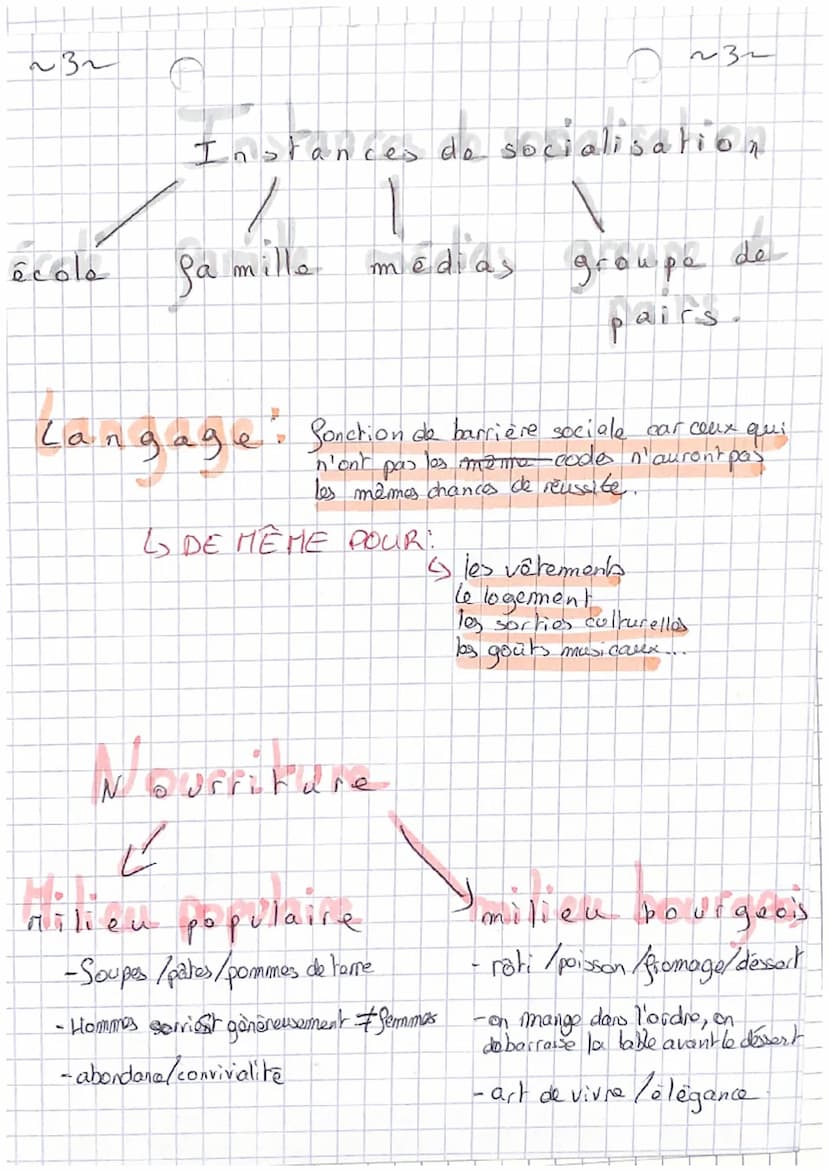 ~3~ ~3~
Instances de socialisation
école famille médias groupe de
pairs.
Langage : fonction de barrière sociale car ceux qui
n'ont pas les même codes n'auront pas
les mêmes chances de réussite.
↳ DE MÊME POUR :
↳ les vêtements
le logement
les sorties culturelles
les goûts musicaux...
Nourriture
Milieu populaire
- Soupes /pâtes/pommes de terre
- Hommes généreusement ≠ femmes
- abondance/convivialité
milieu bourgeois
- rôti /poisson /fromage/déssert
- on mange dans l'ordre, on
débarrasse la table avant le déssert
- art de vivre /élégance